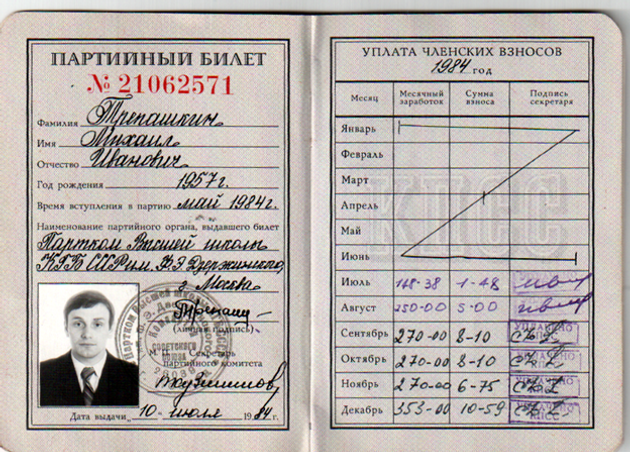 ПАРТИЙНЫЙ БИЛЕТ
№ 21062571
Фамилия Трепашкин
Имя Михаил
Отчество Иванович
Год рождения 1957г.
Время вступления в партию май 1984г.
Наименование партийного органа, выдавшего билет
Партком Высшей школы
КГБ СССР им. Ф.Э. Дзержинского,
г. Москва
(личная подпись)
Секретарь
партийного комитета
Дата выдачи 10 июля 1984 г.
УПЛАТА ЧЛЕНСКИХ ВЗНОСОВ
1984 год
Месяц Месячный заработок Сумма взноса Подпись секретаря
Январь
Февраль
Март
Апрель
КПСС
Май
Июнь
Июль 148-38 1-48
Август 250-00 5-00
Сентябрь 270-00 8-10 УПЛАЧЕНО
Октябрь 270-00 8-10
Ноябрь 270-00 6-75
Декабрь 353-00 10-59 УПЛАЧЕНО КПСС